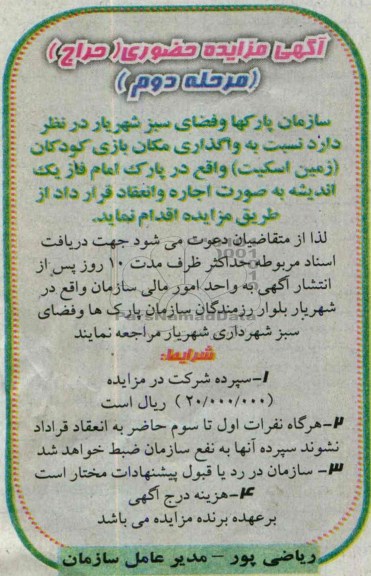 آگهی مزایده حضوری( حراج )
(مرحله دوم )
سازمان پارکها وفضای سبز شهریار در نظر
دارد نسبت به واگذاری مکان بازی کودکان
(زمین اسکیت) واقع در پارک امام فاز یک
اندیشه به صورت اجاره وانعقاد قرار داد از
طریق مزایده اقدام نماید.
لذا از متقاضیان دعوت می شود جهت دریافت
اسناد مربوطه حداکثر ظرف مدت ۱۰ روز پس از
انتشار آگهی به واحد امور مالی سازمان واقع در
شهریار بلوار رزمندگان سازمان پارک ها وفضای
سبز شهرداری شهریار مراجعه نمایند
شرایط:
۱-سپرده شرکت در مزایده
(۲۰/۰۰۰/۰۰۰ ) ریال است
۲-هرگاه نفرات اول تا سوم حاضر به انعقاد قراداد
نشوند سپرده آنها به نفع سازمان ضبط خواهد شد
۳- سازمان در رد یا قبول پیشنهادات مختار است
۴-هزینه درج آگهی
برعهده برنده مزایده می باشد
ریاضی پور - مدیر عامل سازمان
ParsNamadData